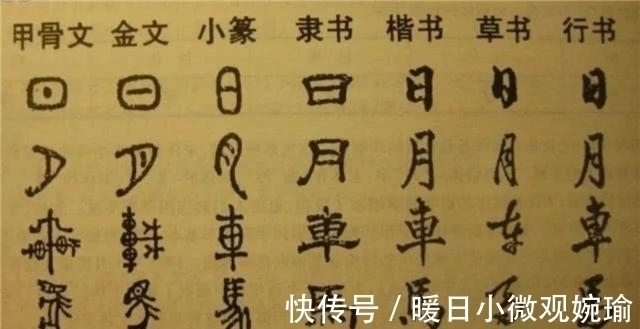 甲骨文 金文 小篆 隶书 楷书 草书 行书
日 日 日 日 日 日 日
月 月 月 月 月 月 月
車 車 車 車 車 车 車
馬 馬 馬 馬 馬 马 馬
快传号 / 暖日小微观婉瑜